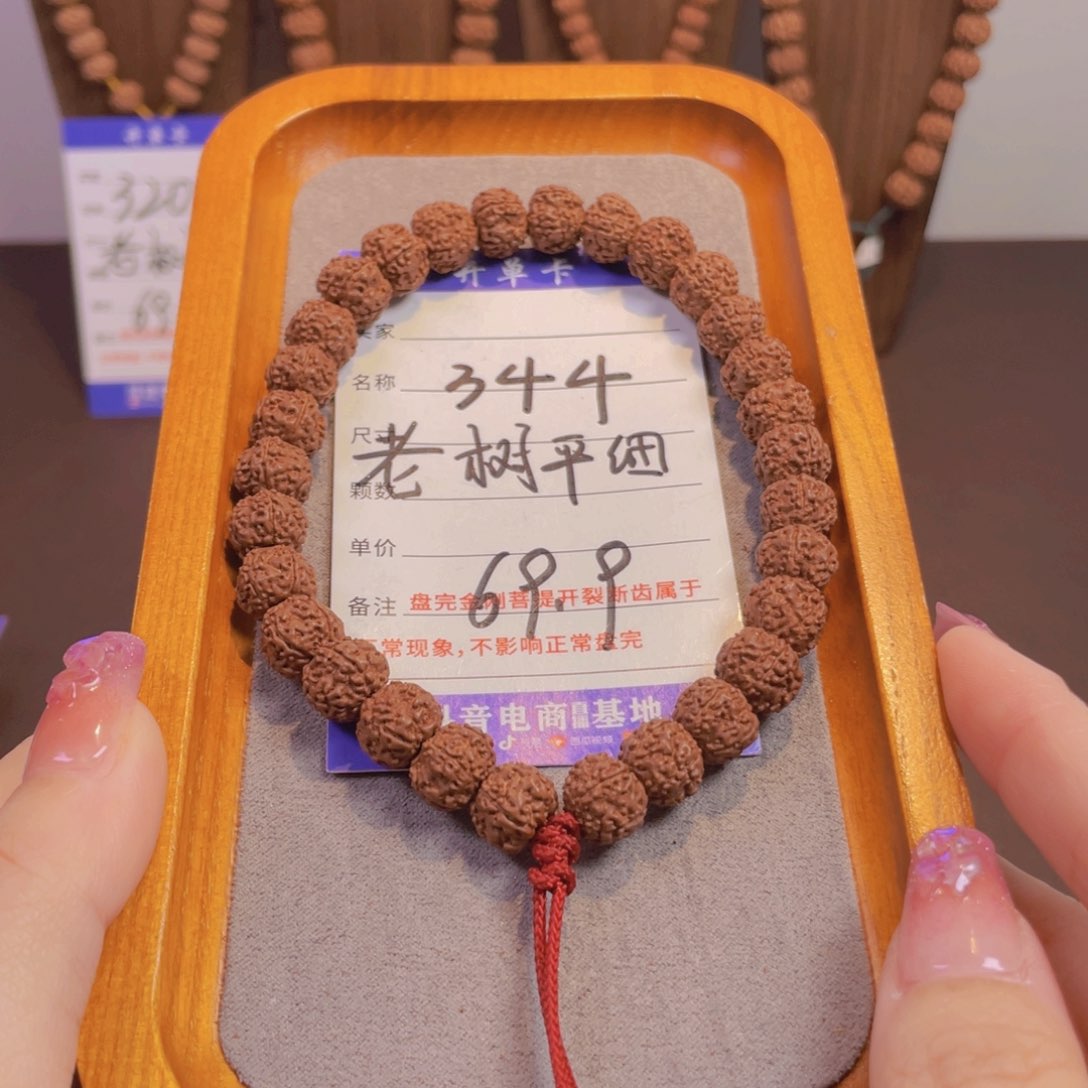 开单卡
320
老树
69
开单卡
卖家
名称 344
尺寸
老树平细
颗数
单价
69.9
备注 盘完金刚菩提开裂断齿属于
正常现象,不影响正常盘完
抖音电商直播基地